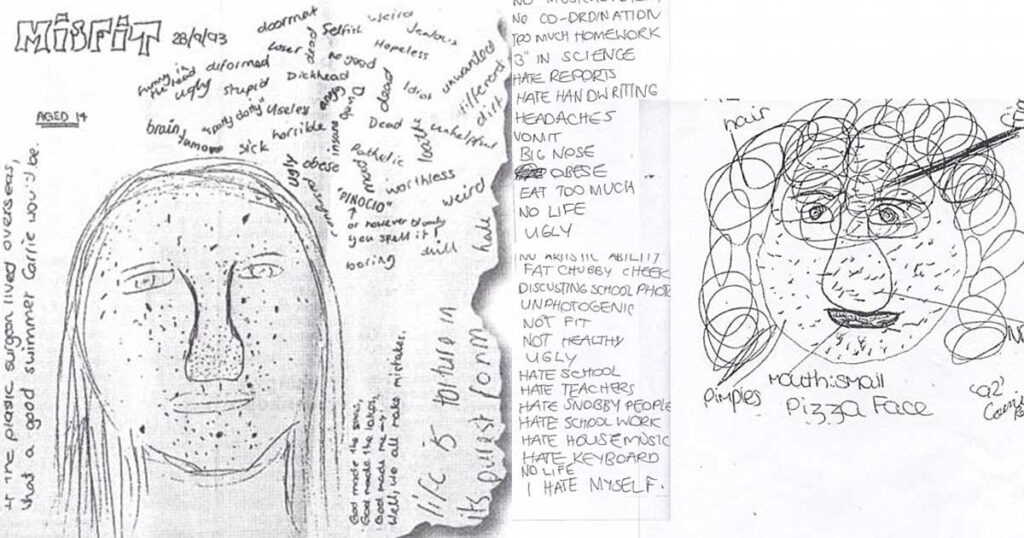 MISFIT 28/9/93
AGED 14
doormat
weird
Selfish
Jealous
Loser
dead
no good
Hopeless
deformed
Dickhead
ugly
stupid
dead
Idiot
unwanted
different
dirt
"party doing"
Useless
angry
Dumb
brain
tumour
horrible
insane
Dead
unhelpful
sick
ugly
obese
mad
Pathetic
worthless
"PINOCIO"
weird
or however bloody
you spell it
dull
hate
boring
If the plastic surgeon lived overseas,
what a good swimmer Carrie would be.
God made the sea,
God made the lakes,
God made me -
Well, we all make mistakes.
life is torture in
its purest form
NO CO-ORDINATION
TOO MUCH HOMEWORK
"3" IN SCIENCE
HATE REPORTS
HATE HANDWRITING
HEADACHES
VOMIT
BIG NOSE
OBESE
EAT TOO MUCH
NO LIFE
UGLY
NO ARTISTIC ABILITY
FAT CHUBBY CHEEK
DISCUSTING SCHOOL PHOTO
UNPHOTOGENIC
NOT FIT
NOT HEALTHY
UGLY
HATE SCHOOL
HATE TEACHERS
HATE SNOBBY PEOPLE
HATE SCHOOL WORK
HATE HOUSE MUSIC
HATE KEYBOARD
NO LIFE
I HATE MYSELF.
hair
Pimples
mouth:small
Pizza Face